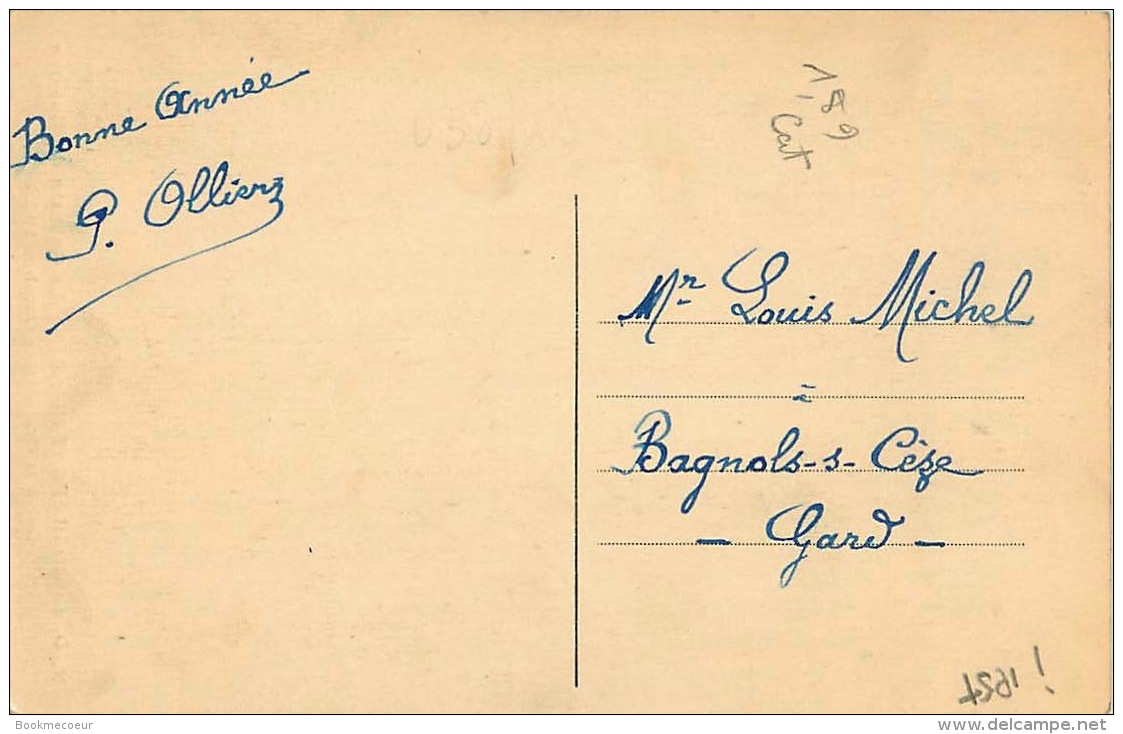 Bonne Année
G. Ollier
1,89
Cat
Mr Louis Michel
à
Bagnols-s-Cèze
- Gard -
Bookmecoeur
www.delcampe.net